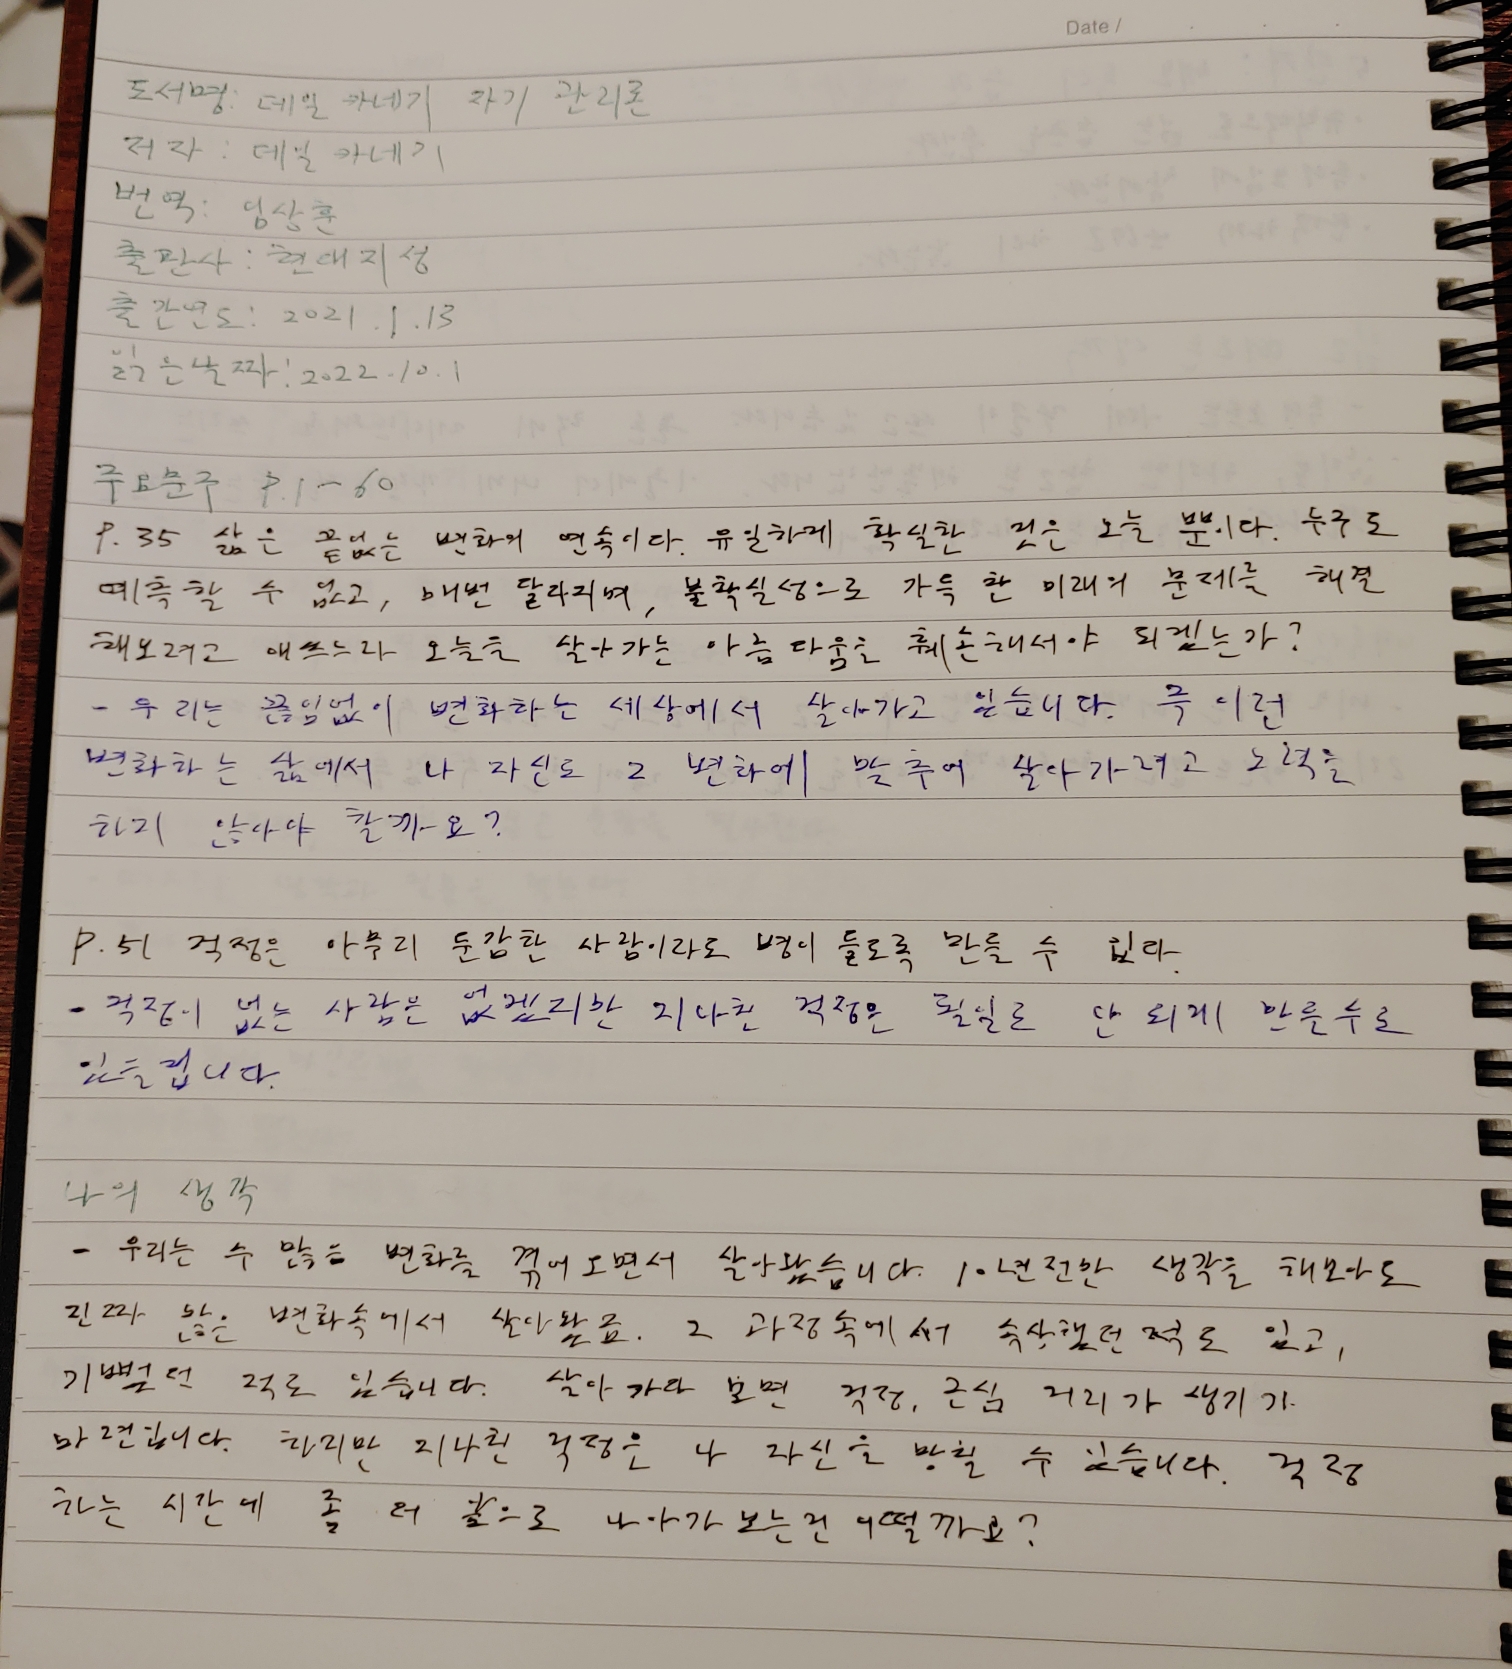 Date /
도서명: 데일 카네기 자기 관리론
저자 : 데일 카네기
번역: 임상훈
출판사 : 현대지성
출간연도: 2021.1.13
읽은날짜: 2022.10.1
주요문구 P.1~60
P. 35 삶은 끝없는 변화의 연속이다. 유일하게 확실한 것은 오늘 뿐이다. 누구도
예측할 수 없고, 매번 달라지며, 불확실성으로 가득 한 미래의 문제를 해결
해보려고 애쓰느라 오늘을 살아가는 아름다움을 훼손해서야 되겠는가?
- 우리는 끊임없이 변화하는 세상에서 살아가고 있습니다. 즉 이런
변화하는 삶에서 나 자신도 그 변화에 맞추어 살아가려고 노력을
하지 않아야 할까요?
P. 51 걱정은 아무리 둔감한 사람이라도 병이 들도록 만들 수 있다.
- 걱정이 없는 사람은 없겠지만 지나친 걱정은 될일도 안 되게 만들수도
있을겁니다.
나의 생각
- 우리는 수 많은 변화를 겪어오면서 살아왔습니다. 10년전만 생각을 해보아도
진짜 많은 변화속에서 살아왔음. 그 과정속에서 속상했던 적도 있고,
기뻤던 적도 있습니다. 살아가다 보면 걱정, 근심 거리가 생기기
마련입니다. 하지만 지나친 걱정은 나 자신을 망칠 수 있습니다. 걱정
하는 시간에 좀 더 앞으로 나아가 보는건 어떨까요?